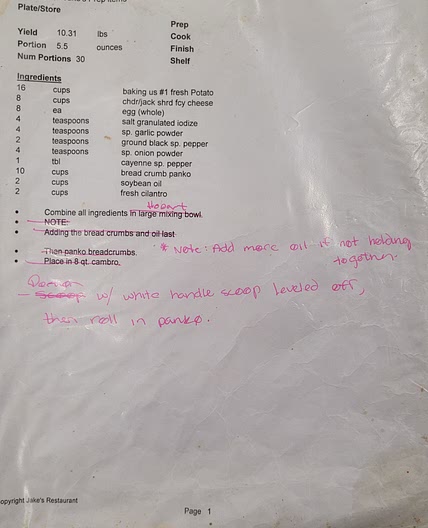 Prep Items
Plate/Store
Prep
Yield 10.31 lbs
Cook
Portion 5.5 ounces
Finish
Num Portions 30
Shelf
Ingredients
16 cups baking us #1 fresh Potato
8 cups chdr/jack shrd fcy cheese
8 ea egg (whole)
4 teaspoons salt granulated iodize
4 teaspoons sp. garlic powder
2 teaspoons ground black sp. pepper
4 teaspoons sp. onion powder
1 tbl cayenne sp. pepper
10 cups bread crumb panko
2 cups soybean oil
2 cups fresh cilantro
Hobart
• Combine all ingredients in large mixing bowl.
• NOTE:
• Adding the bread crumbs and oil last
• Then panko breadcrumbs.
* Note: Add more oil if not holding together.
• Place in 8 qt. cambro.
Portion
- scoop w/ white handle scoop leveled off,
then roll in panko.
opyright Jake's Restaurant
Page 1